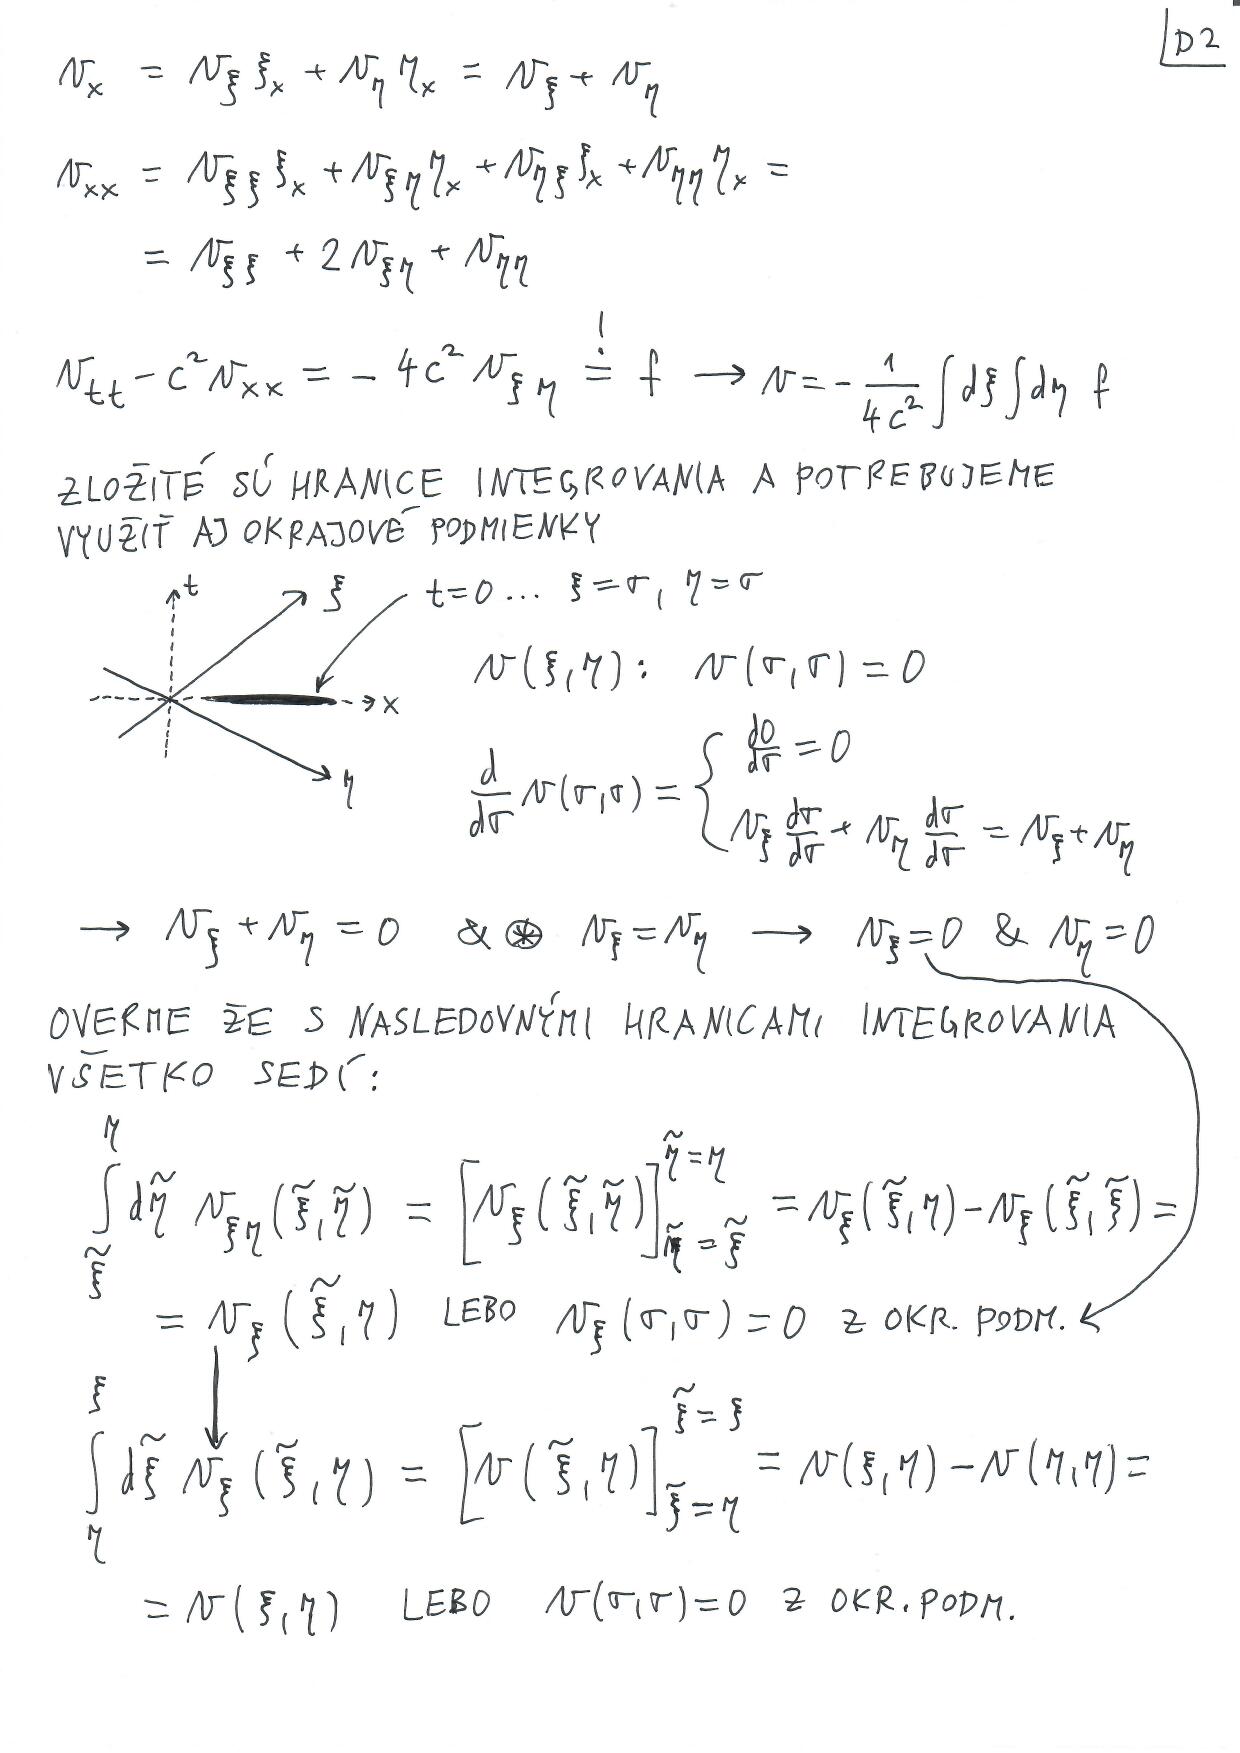 D2
v_x = v_ξ ξ_x + v_η η_x = v_ξ + v_η
v_xx = v_ξξ ξ_x + v_ξη η_x + v_ηξ ξ_x + v_ηη η_x =
= v_ξξ + 2 v_ξη + v_ηη
v_tt - c² v_xx = - 4c² v_ξη =! f → v = - 1/(4c²) ∫dξ ∫dη f
ZLOŽITÉ SÚ HRANICE INTEGROVANIA A POTREBUJEME
VYUŽIŤ AJ OKRAJOVÉ PODMIENKY
t ξ t=0 ... ξ=σ, η=σ
v(ξ,η): v(σ,σ) = 0
x
η
d/dσ v(σ,σ) = { d0/dσ = 0
v_ξ dσ/dσ + v_η dσ/dσ = v_ξ + v_η
→ v_ξ + v_η = 0 & ⊛ v_ξ = v_η → v_ξ = 0 & v_η = 0
OVERME ŽE S NASLEDOVNÝMI HRANICAMI INTEGROVANIA
VŠETKO SEDÍ:
∫_ξ̃^η dη̃ v_ξη(ξ̃,η̃) = [v_ξ(ξ̃,η̃)]_{η̃=ξ̃}^{η̃=η} = v_ξ(ξ̃,η) - v_ξ(ξ̃,ξ̃) =
= v_ξ(ξ̃,η) LEBO v_ξ(σ,σ) = 0 Z OKR. PODM.
∫_η^ξ dξ̃ v_ξ(ξ̃,η) = [v(ξ̃,η)]_{ξ̃=η}^{ξ̃=ξ} = v(ξ,η) - v(η,η) =
= v(ξ,η) LEBO v(σ,σ) = 0 Z OKR. PODM.